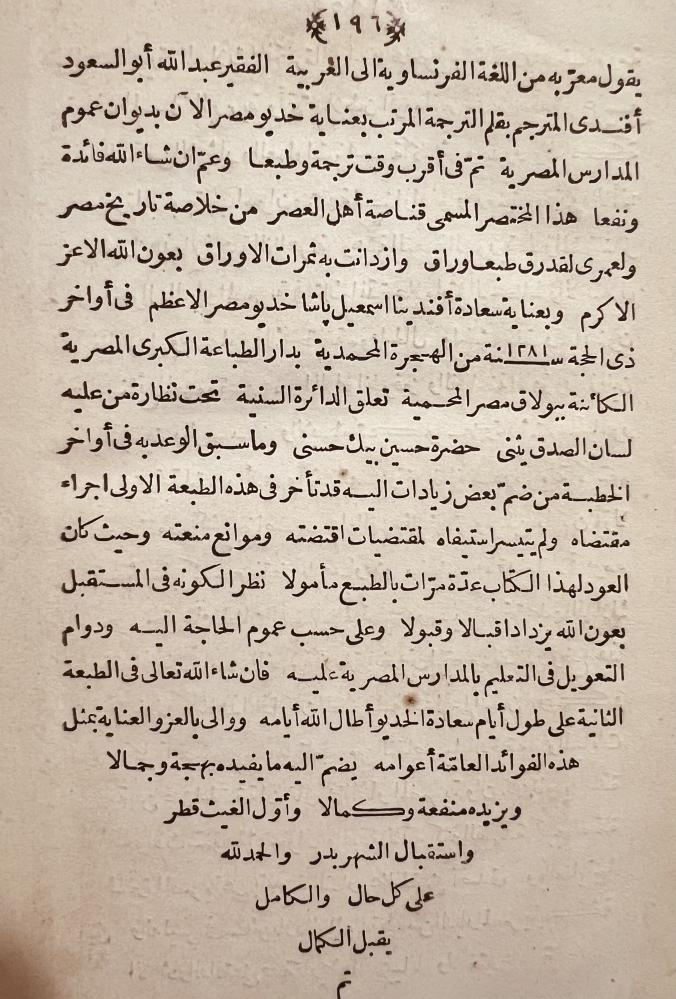 ١٩٦
يقول معرّبه من اللغة الفرنساوية الى العربية الفقير عبد الله أبو السعود
أفندى المترجم بقلم الترجمة المرتب بعناية خديو مصر الآن بديوان عموم
المدارس المصرية تمّ فى أقرب وقت ترجمة وطبعا وعمّ ان شاء الله فائدة
ونفعا هذا المختصر المسمى قناصة أهل العصر من خلاصة تاريخ مصر
ولعمرى لقد رق طبعا وراق وازدانت به ثمرات الاوراق بعون الله الاعز
الاكرم وبعناية سعادة أفندينا اسمعيل پاشا خديو مصر الاعظم فى أواخر
ذى الحجة سنة ١٢٨١ من الهجرة المحمدية بدار الطباعة الكبرى المصرية
الكائنة ببولاق مصر المحمية تعلق الدائرة السنية تحت نظارة من عليه
لسان الصدق يثنى حضرة حسين بيك حسنى وما سبق الوعد به فى أواخر
الخطبة من ضمّ بعض زيادات اليه قد تأخر فى هذه الطبعة الاولى اجراء
مقتضاه ولم يتيسر استيفاه لمقتضيات اقتضته وموانع منعته وحيث كان
العود لهذا الكتاب عدّة مرّات بالطبع مأمولا نظرا لكونه فى المستقبل
بعون الله يزداد اقبالا وقبولا وعلى حسب عموم الحاجة اليه ودوام
التعويل فى التعليم بالمدارس المصرية عليه فان شاء الله تعالى فى الطبعة
الثانية على طول أيام سعادة الخديو أطال الله أيامه ووالى بالعز والعناية بمثل
هذه الفوائد العامّة أعوامه يضمّ اليه ما يفيده بهجة وجمالا
ويزيده منفعة وكمالا وأوّل الغيث قطر
واستقبال الشهر بدر والحمد لله
على كل حال والكامل
يقبل الكمال
تم